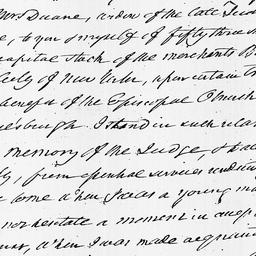 Mrs Duane, widow of the late
to you & myself of fifty three
capital stock of the merchants B
City of New York, upon certain tr
benefit of the Episcopal Church
esburgh. I stand in such rela
memory of the Judge, & ha
ly, from essential services rendered
to me when I was a young m
not hesitate a moment in accep
when I was made acquain